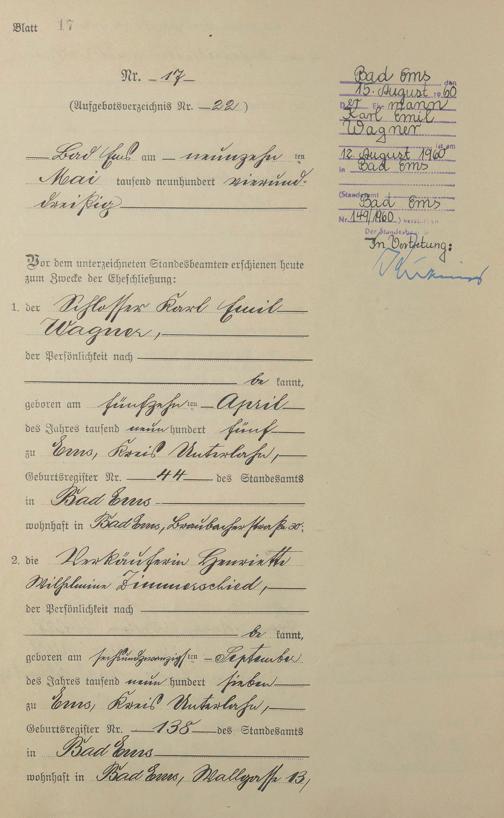 Blatt 17
Nr. 17
(Aufgebotsverzeichnis Nr. 22)
Bad Ems am neunzehn ten
Mai tausend neunhundert vierund-
dreißig
Vor dem unterzeichneten Standesbeamten erschienen heute
zum Zwecke der Eheschließung:
1. der Schlosser Karl Emil
Wagner,
der Persönlichkeit nach
be kannt,
geboren am fünfzehn ten April
des Jahres tausend neun hundert fünf
zu Ems, Kreis Unterlahn,
Geburtsregister Nr. 44 des Standesamts
in Bad Ems
wohnhaft in Bad Ems, Braubacherstraße 30.
2. die Verkäuferin Henriette
Wilhelmine Zimmerschied,
der Persönlichkeit nach
be kannt,
geboren am sechsundzwanzigsten September
des Jahres tausend neun hundert sieben
zu Ems, Kreis Unterlahn,
Geburtsregister Nr. 138 des Standesamts
in Bad Ems
wohnhaft in Bad Ems, Wallgasse 13,
Bad Ems den
15. August 1960
Der Ehemann
Karl Emil
Wagner
ist am
12. August 1960
in Bad Ems
(Standesamt
Bad Ems
Nr. 149/1960)
Der Standesbeamte
In Vertretung: